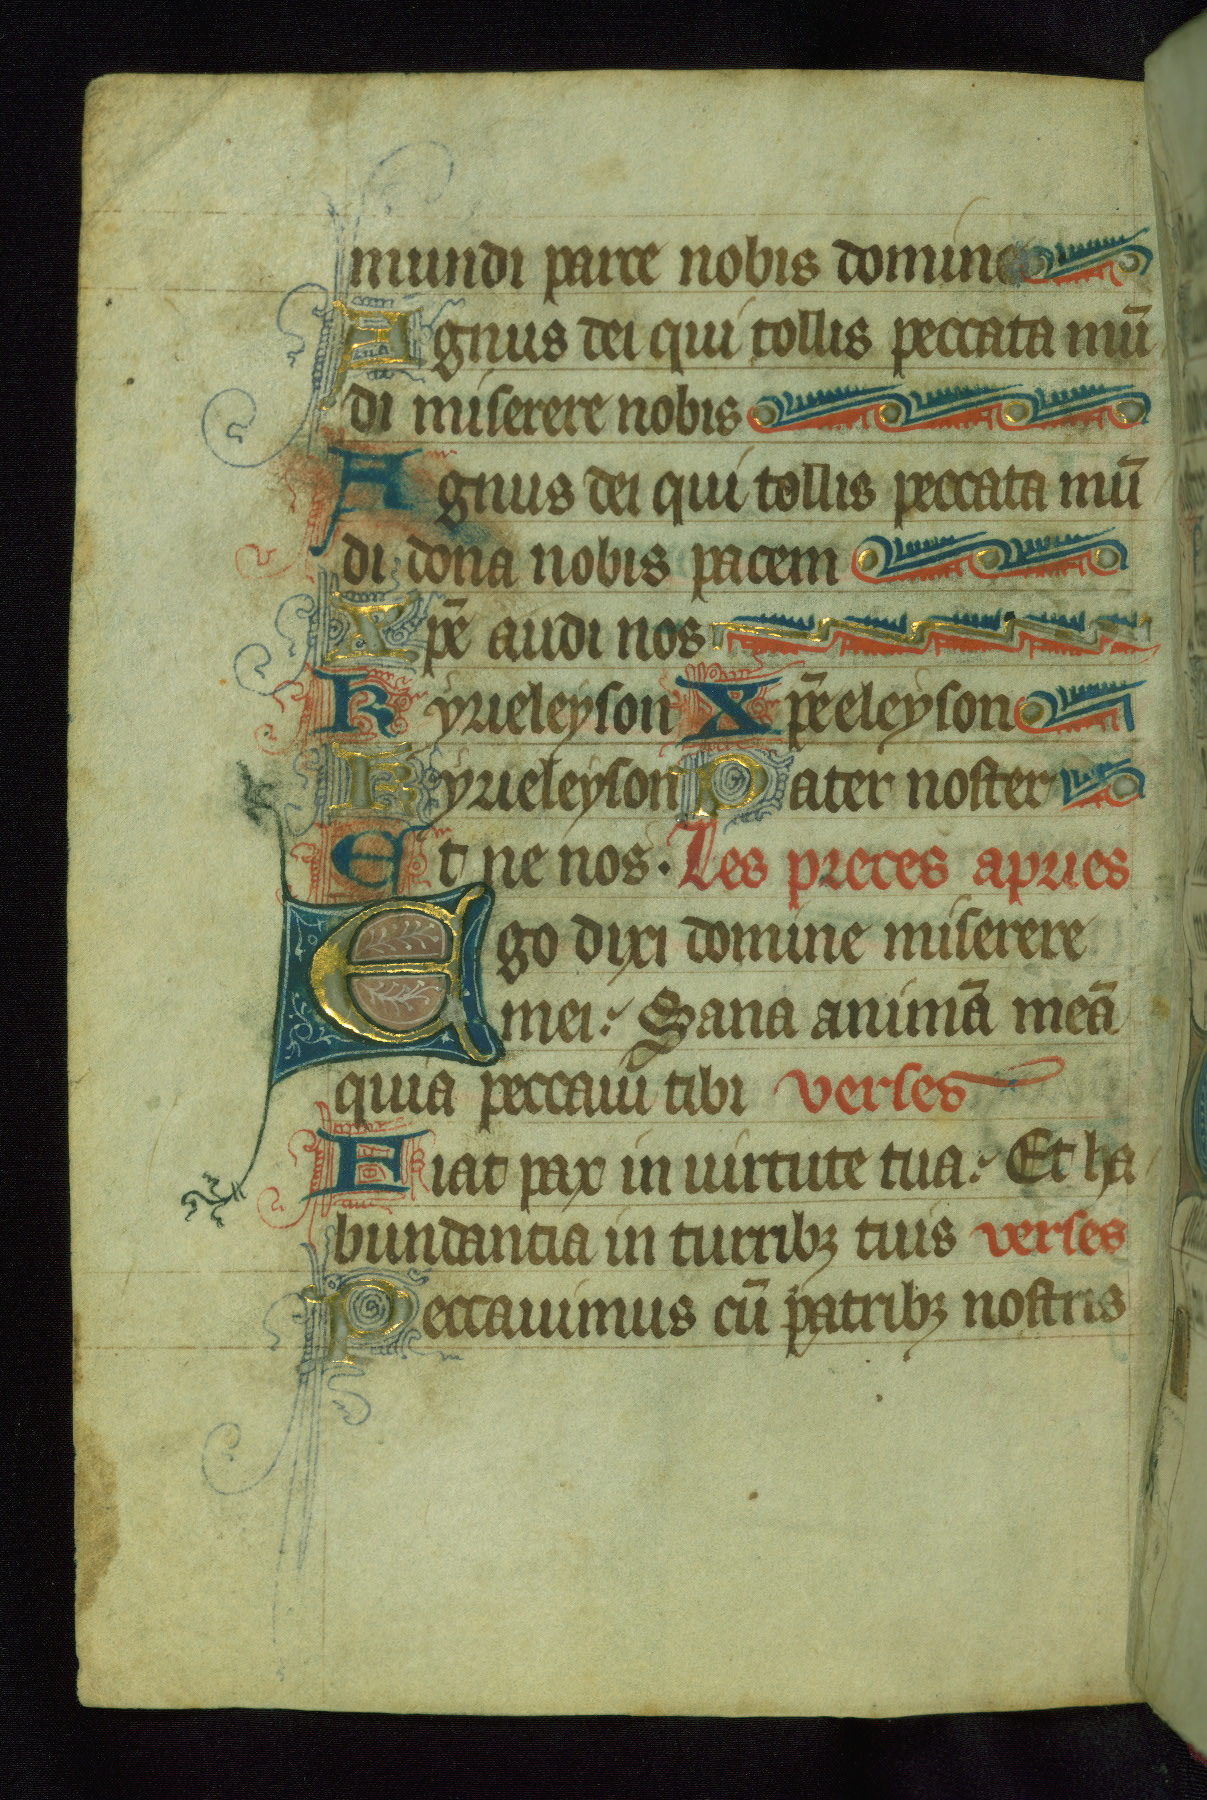 mundi parce nobis domine
Agnus dei qui tollis peccata mū
di miserere nobis
Agnus dei qui tollis peccata mū
di dona nobis pacem
Xpē audi nos
Kyrieleyson Xpēeleyson
Kyrieleyson Pater noster
Et ne nos. Les preces apries
Ego dixi domine miserere
mei: Sana animā meā
quia peccaui tibi verses
Fiat pax in uirtute tua: Et ha
bundantia in turribꝫ tuis verses
Peccauimus cū patribꝫ nostris